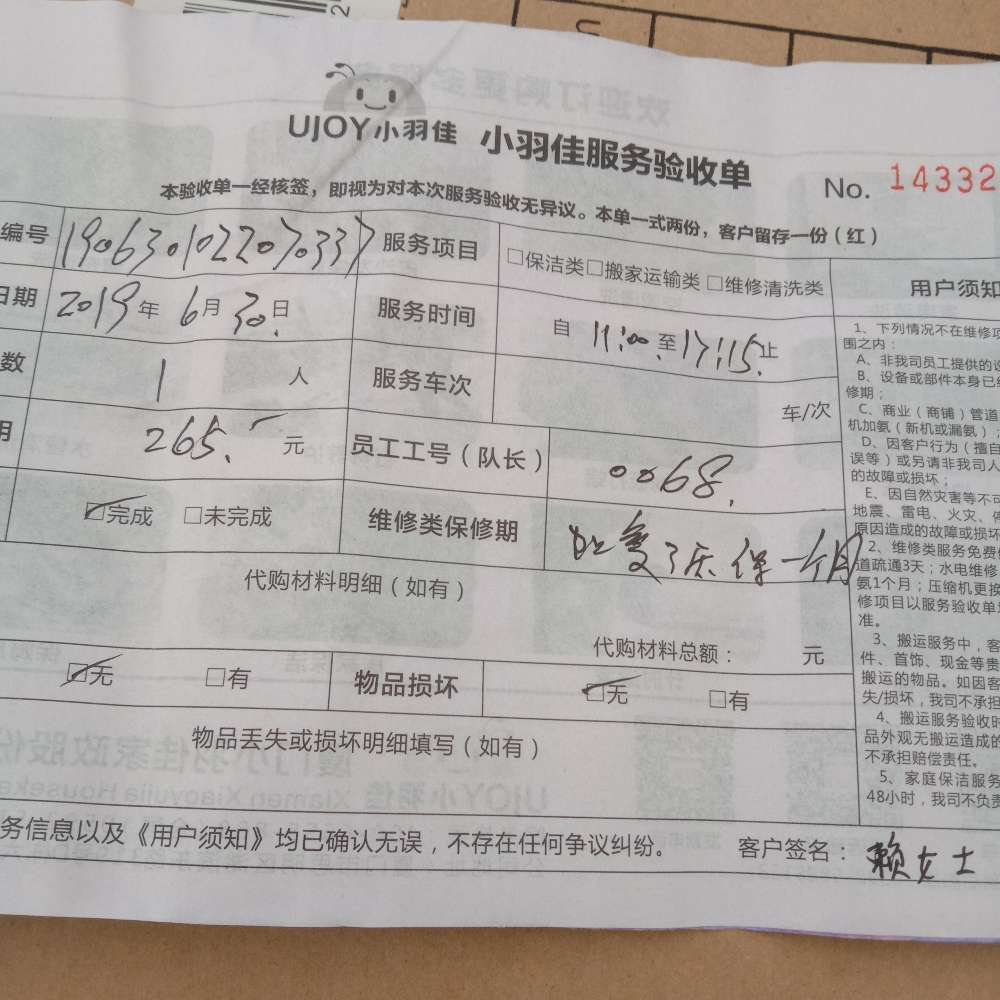 UJOY小羽佳 小羽佳服务验收单 No. 14332
本验收单一经核签，即视为对本次服务验收无异议。本单一式两份，客户留存一份（红）
编号 1906301022070337 服务项目 □保洁类□搬家运输类□维修清洗类
日期 2019年6月30日 服务时间 自 11:00 至 17:15 止
数 1 人 服务车次 车/次
用 265. 元 员工工号（队长） 0068.
☑完成 □未完成 维修类保修期 保一个月
代购材料明细（如有）
代购材料总额： 元
☑无 □有 物品损坏 ☑无 □有
物品丢失或损坏明细填写（如有）
务信息以及《用户须知》均已确认无误，不存在任何争议纠纷。 客户签名：赖女士
用户须知
1、下列情况不在维修项
围之内：
A、非我司员工提供的设
B、设备或部件本身已
修期；
C、商业（商铺）管道
机加氨（新机或漏氨）；
D、因客户行为（擅自
误等）或另请非我司人
的故障或损坏；
E、因自然灾害等不可
地震、雷电、火灾、
原因造成的故障或损坏
2、维修类服务免费
道疏通3天；水电维修
氨1个月；压缩机更换
修项目以服务验收单
准。
3、搬运服务中，客
件、首饰、现金等贵
搬运的物品。如因客
失/损坏，我司不承担
4、搬运服务验收时
品外观无搬运造成的
不承担赔偿责任。
5、家庭保洁服务
48小时，我司不负责